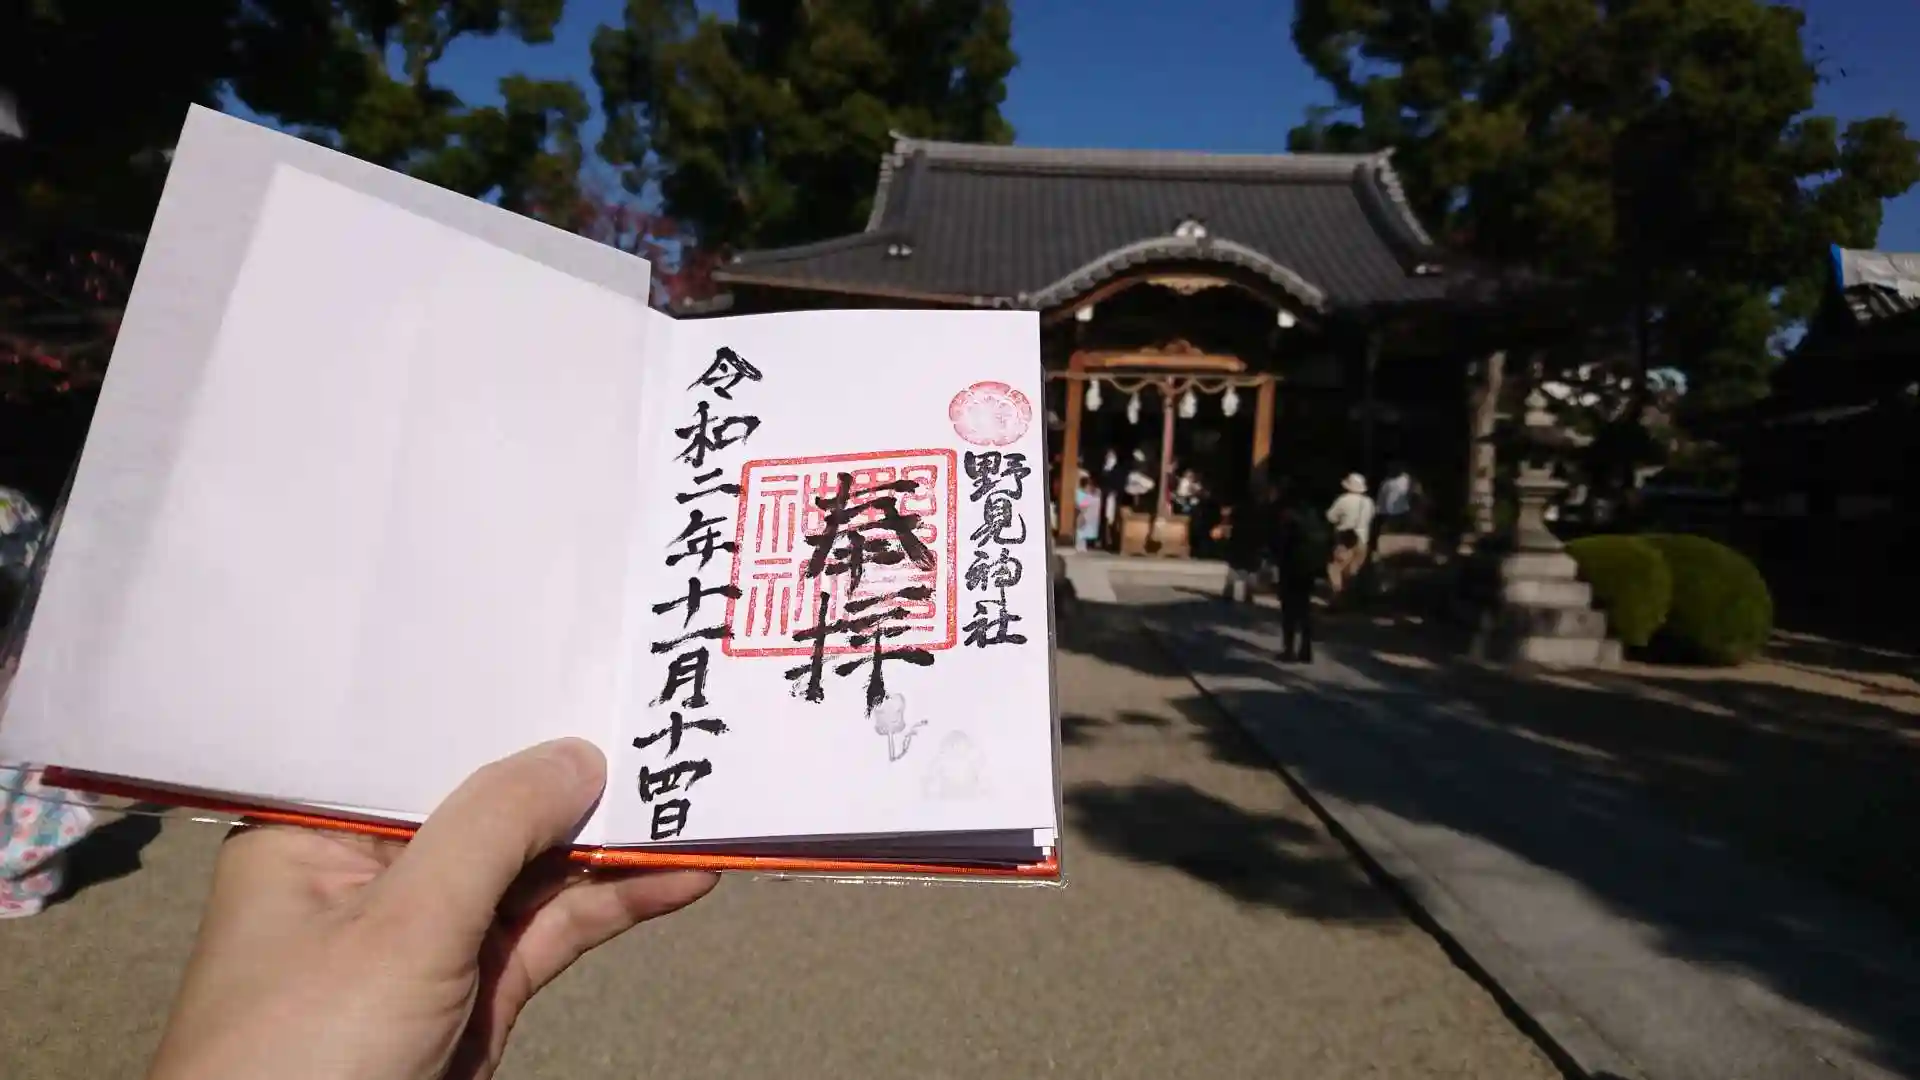 野見神社
奉拝
野見
神社
令和二年十一月十四日